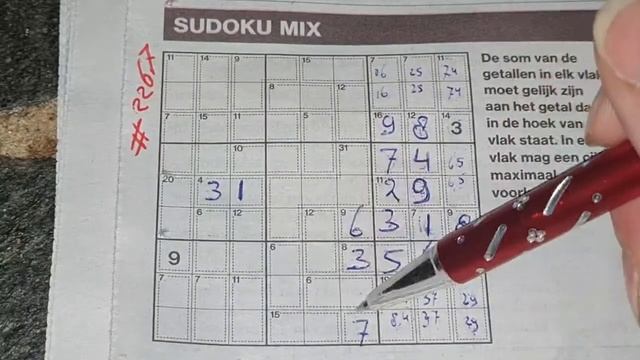 SUDOKU MIX
#2267
De som van de
getallen in elk vlak
moet gelijk zijn
aan het getal da
in de hoek van
vlak staat. In e
vlak mag een cij
maximaal
voork
11 14 9 15 7 7 11
16 25 74
8 12
16 28 74
7 15 11 16 12 14
9 8 3
10 31
7 4 65
20 4 11
3 1 2 9 6,5
6 12 12 9 7 9
6 3 1 8
6 8
9 3 5
7 7 11 6 10
37 29
15
7 8,4 37 29